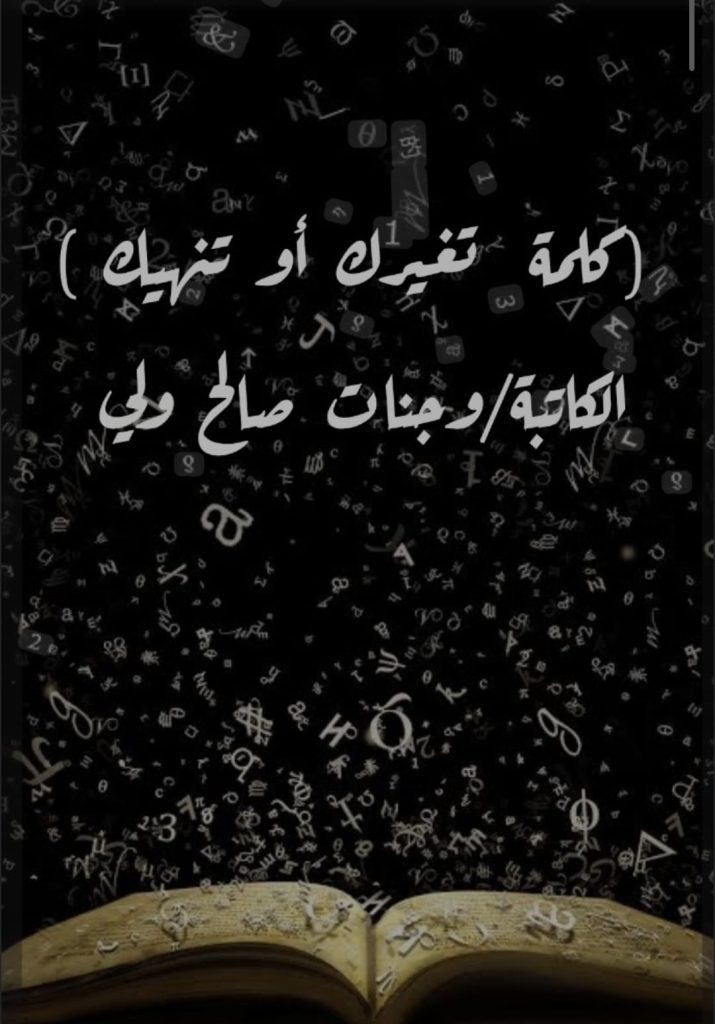 (كلمة تغيرك أو تنهيك )
الكاتبة/وجنات صالح ولي